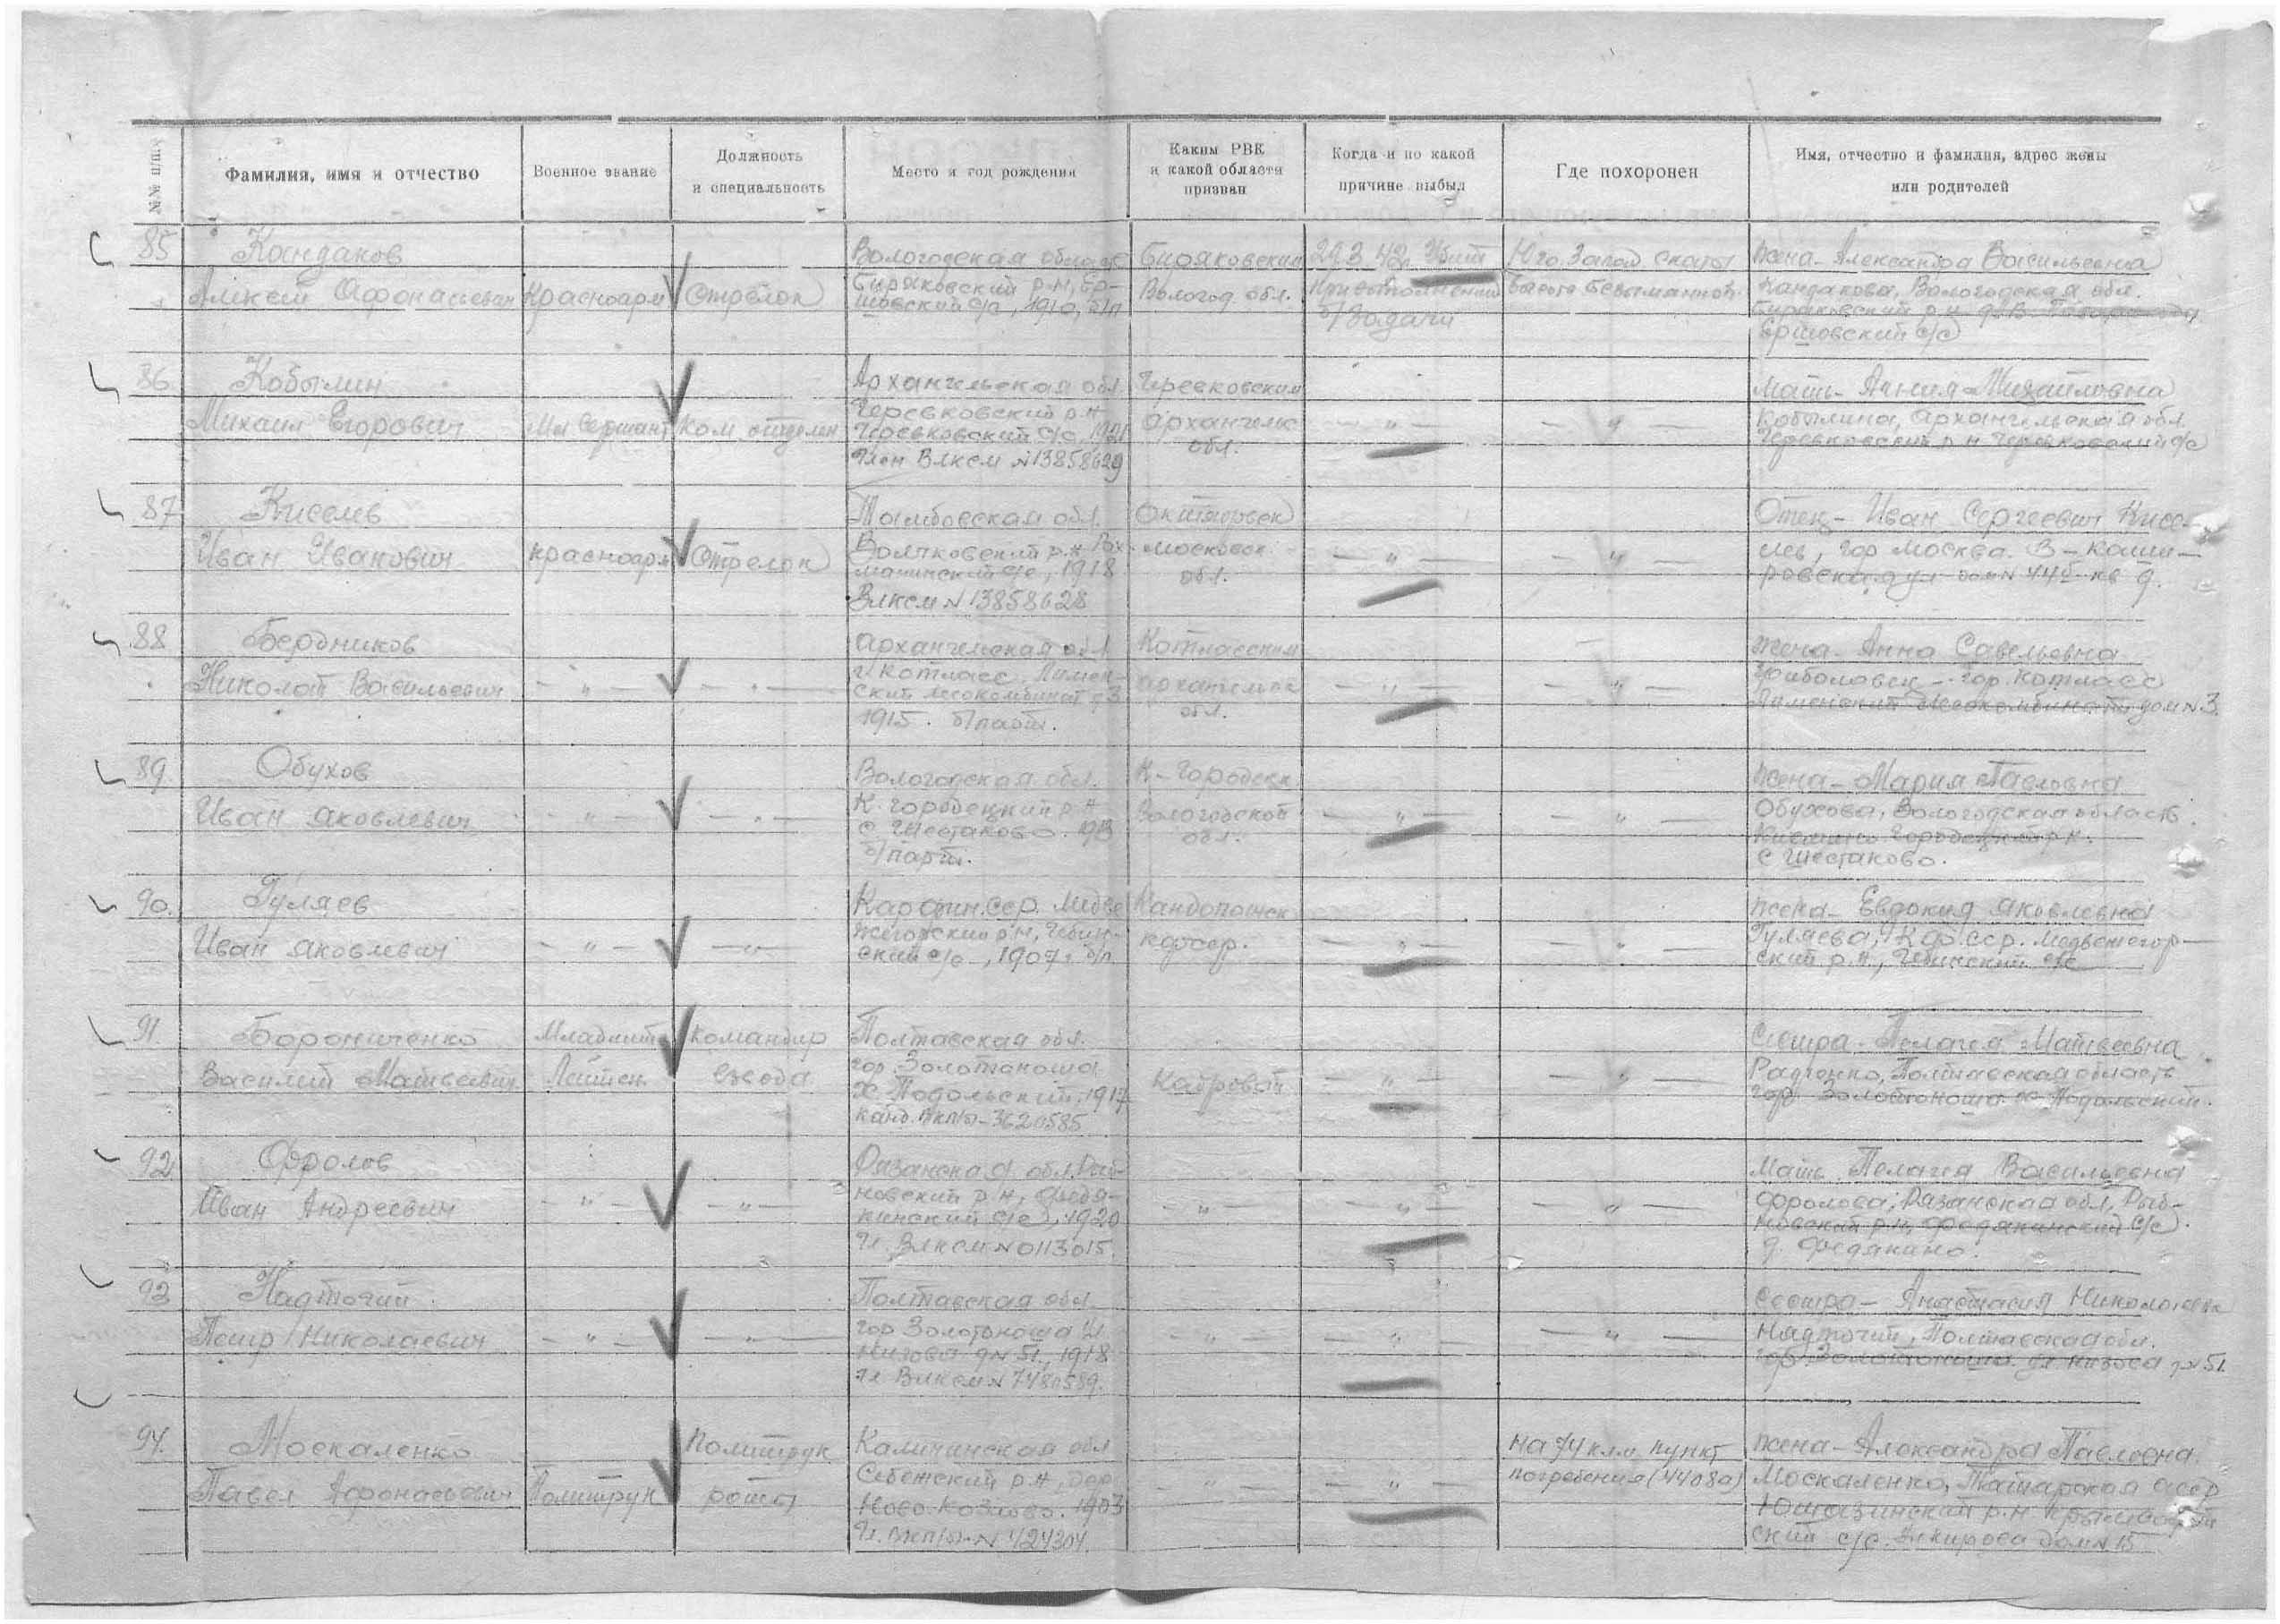 №№ п/п
Фамилия, имя и отчество
Военное звание
Должность
и специальность
Место и год рождения
Каким РВК
и какой области
призван
Когда и по какой
причине выбыл
Где похоронен
Имя, отчество и фамилия, адрес жены
или родителей
85
Кандаков
Алексей Афонасьевич
Красноарм
Стрелок
Вологодская область
Биряковский р-н, Ер-
шовский с/с, 1910, б/п
Биряковским
Вологод. обл.
29.3.42г. Убит
При выполнении
б/задачи
Юго. Запад. скаты
высота безыманной
жена - Александра Васильевна
Кандакова, Вологодская обл.
Ершовский с/с
86
Кобылин
Михаил Егорович
Мл Сержант
Ком. отделен
Архангельская обл.
Черевковский р-н
Черевковский с/с, 1921
Член Влксм №13858629
Черевковским
Архангельс
обл.
— " —
— " —
Мать - Михайловна
Кобылина, Архангельская обл.
Черевковский р-н Черевковский с/с
87
Киселев
Иван Иванович
Красноарм
Стрелок
Тамбовская обл.
с/с, 1918
Влксм №13858628
Октябрьск
московск.
обл.
— " —
— " —
Отец - Иван Сергеевич Кисе-
лев, гор Москва. 3 - Каши-
ровская ул дом №
88
Бердников
Николай Васильевич
— " —
— " —
Архангельская обл.
г. Котласс, Лимен-
ский лесокомбинат д3
1915. б/парт.
Котласским
архангельск
обл.
— " —
— " —
жена - Анна Савельевна
гор. Котласс
Лименский Лесокомбинат дом №3.
89.
Обухов
Иван Яковлевич
— " —
— " —
Вологодская обл.
К. городецкий р-н
с Шестаково. 1913
б/парт.
К-Городецк
Вологодской
обл.
— " —
— " —
жена - Мария Павловна
Обухова, Вологодская область.
Городецкий р-н.
с Шестаково.
90.
Гуляев
Иван Яковлевич
— " —
— " —
Карофин.сср. Медве
жегорский р-н, Чебин-
ский с/с, 1907г. б/п
Кандопожск
кфсср.
— " —
— " —
жена - Евдокия Яковлевна
Гуляева, Кф.сср. Медвежегор-
ский р.н., Чебинский с/с
91.
Борониченко
Василий Матвеевич
Младший
Лейтен.
Командир
взвода
Полтавская обл.
гор. Золотоноша
х. Подольский, 1917
канд. вкп/б-3620585
Кадровый
— " —
— " —
Сестра - Пелагея Матвеевна
Радченко, Полтавская область
гор. Золотоноша х Подольский.
92
Фролов
Иван Андреевич
— " —
— " —
Рязанская обл. Рыб-
новский р-н, Федя-
кинский с/с, 1920
Чл. Влксм №0113015.
— " —
— " —
— " —
Мать Пелагея Васильевна
Фролова, Рязанская обл, Рыб-
новский р-н, Федякинский с/с.
д. Федякино.
93
Надточий
Петр Николаевич
— " —
— " —
Полтавская обл.
гор Золотоноша ул
Низова д№51, 1918
чл Влксм № 7480589.
— " —
— " —
— " —
Сестра - Анастасия Николаевна
Надточий, Полтавская обл.
гор. Золотоноша ул. Низова д№51.
94.
Москаленко
Павел Афонасьевич
Политрук
Политрук
роты
Калининская обл
Себежский р-н, дер.
Ново Козлово. 1903
Чл. вкп/б № 424304.
— " —
— " —
На 74 клм. пункт
погребения (4408а)
жена - Александра Павловна.
Москаленко, Татарская асср
Ютазинский р-н
ский с/с. дом №15